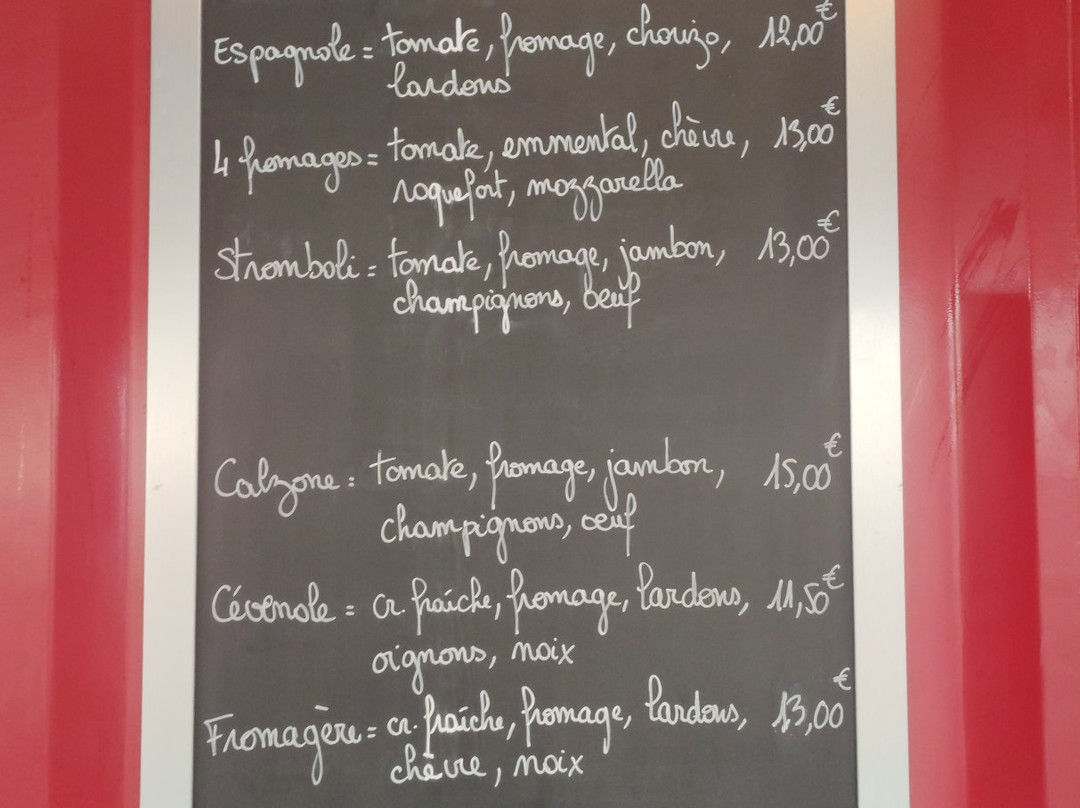 Espagnole = tomate, fromage, chorizo, 12,00€
lardons
4 fromages = tomate, emmental, chèvre, 13,00€
roquefort, mozzarella
Stromboli = tomate, fromage, jambon, 13,00€
champignons, bœuf
Calzone = tomate, fromage, jambon, 15,00€
champignons, œuf
Cévenole = cr. fraîche, fromage, lardons, 11,50€
oignons, noix
Fromagère = cr. fraîche, fromage, lardons, 13,00€
chèvre, noix